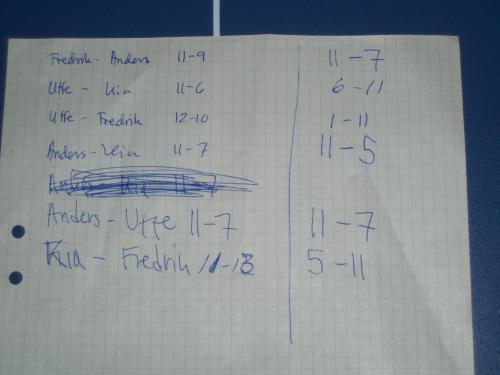 Fredrik - Anders 11-9 11-7
Uffe - Kia 11-6 6-11
Uffe - Fredrik 12-10 1-11
Anders - Kia 11-7 11-5
Anders - Uffe 11-7 11-7
Kia - Fredrik 5-11